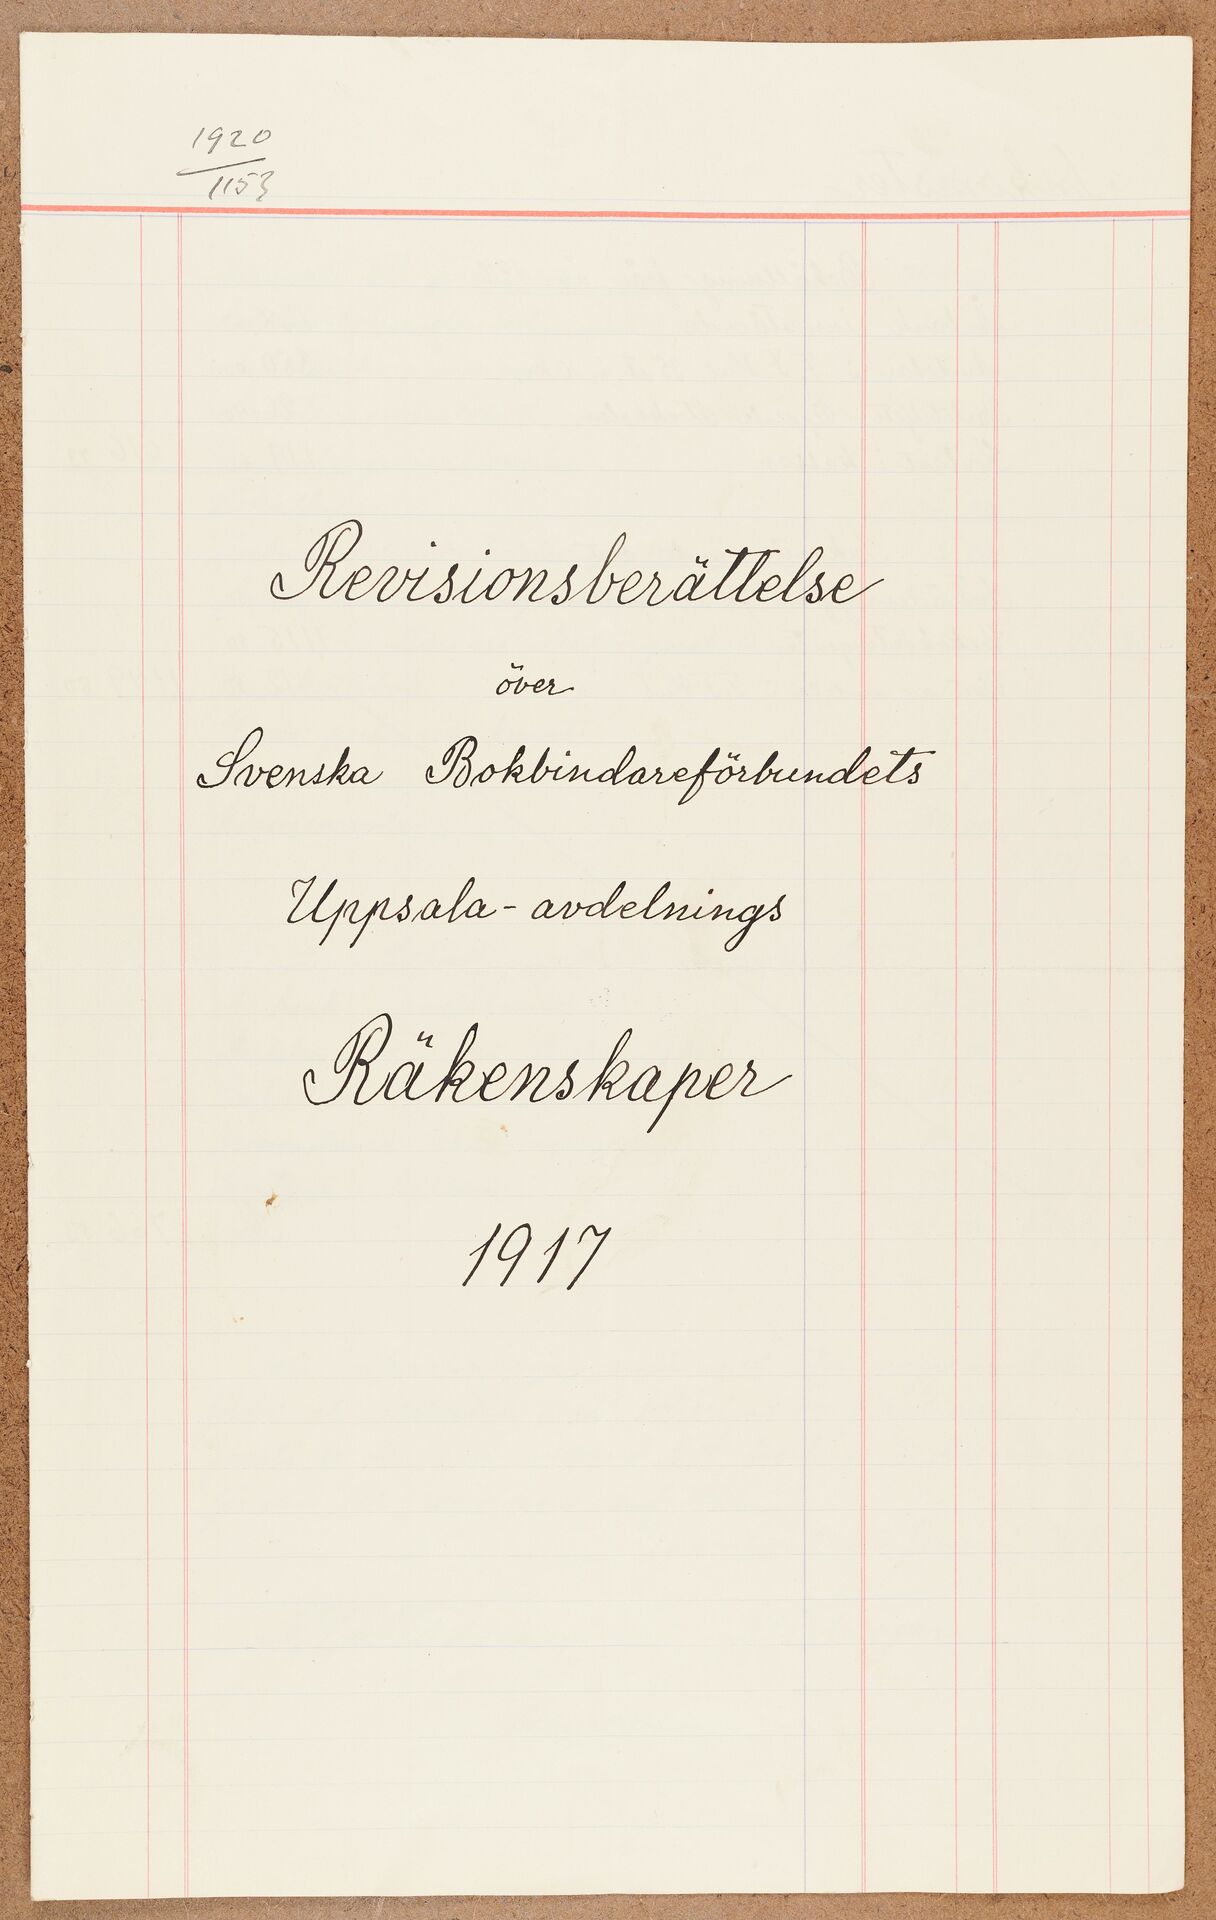 1920
1153
Revisionsberättelse
över
Svenska Bokbindareförbundets
Uppsala-avdelnings
Räkenskaper
1917